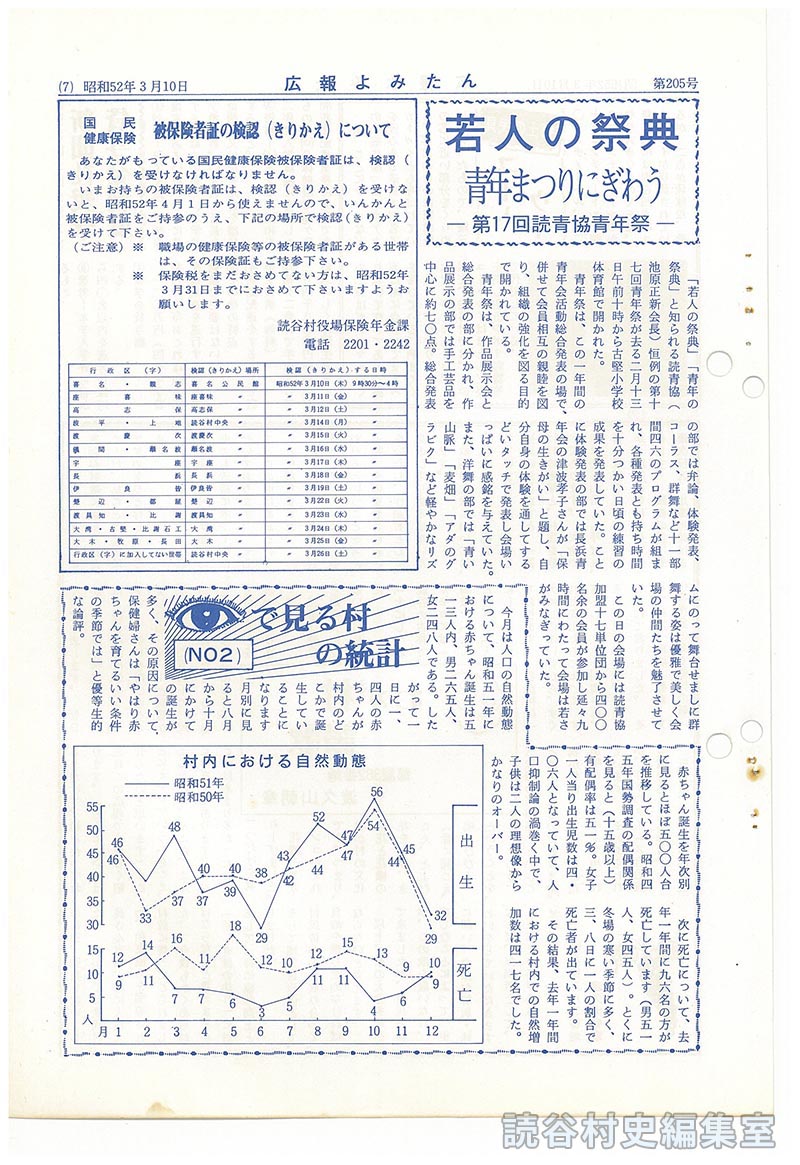 (7) 昭和52年3月10日
広報よみたん
第205号
国民健康保険
被保険者証の検認(きりかえ)について
あなたがもっている国民健康保険被保険者証は、検認(
きりかえ)を受けなければなりません。
いまお持ちの被保険者証は、検認(きりかえ)を受けな
いと、昭和52年4月1日から使えませんので、いんかんと
被保険者証をご持参のうえ、下記の場所で検認(きりかえ)
を受けて下さい。
(ご注意)※ 職場の健康保険等の被保険者証がある世帯
は、その保険証もご持参下さい。
※ 保険税をまだおさめてない方は、昭和52年
3月31日までにおさめて下さいますようお
願いします。
読谷村役場保険年金課
電話 2201・2242
行政区(字) 検認(きりかえ)場所 検認(きりかえ)する日時
喜名・親志 喜名公民館 昭和52年3月10日(木) 9時30分~4時
座喜味 座喜味 〃 〃 3月11日(金) 〃
高志保 高志保 〃 〃 3月12日(土) 〃
波平・上地 読谷村中央 〃 〃 3月14日(月) 〃
渡慶次 渡慶次 〃 〃 3月15日(火) 〃
儀間・瀬名波 瀬名波 〃 〃 3月16日(水) 〃
宇座 宇座 〃 〃 3月17日(木) 〃
長浜 長浜 〃 〃 3月18日(金) 〃
伊良皆 伊良皆 〃 〃 3月19日(土) 〃
楚辺・都屋 楚辺 〃 〃 3月22日(火) 〃
渡具知・比謝 渡具知 〃 〃 3月23日(水) 〃
大湾・古堅・比謝矼 大湾 〃 〃 3月24日(木) 〃
大木・牧原・長田 大木 〃 〃 3月25日(金) 〃
行政区(字)に加入してない世帯 読谷村中央 〃 〃 3月26日(土) 〃
若人の祭典
青年まつりにぎわう
―第17回読青協青年祭―
「若人の祭典」「青年の
祭典」と知られる読青協(
池原正新会長)恒例の第十
七回青年祭が去る二月十三
日午前十時から古堅小学校
体育館で開かれた。
青年祭は、この一年間の
青年会活動総合発表の場で、
併せて会員相互の親睦を図
り、組織の強化を図る目的
で開かれている。
青年祭は、作品展示会と
総合発表の部に分かれ、作
品展示の部では手工芸品を
中心に約七〇点。総合発表
の部では弁論、体験発表、
コーラス、群舞など十一部
間四六のプログラムが組ま
れ、各種発表とも持ち時間
を十分つかい日頃の練習の
成果を発表していた。こと
に体験発表の部では長浜青
年会の津波孝子さんが「保
母の生きがい」と題し、自
分自身の体験を通してする
どいタッチで発表し会場い
っぱいに感銘を与えていた。
また、洋舞の部では「青い
山脈」「麦畑」「アダのグ
ラビク」など軽やかなリズ
ムにのって舞台せましに群
舞する姿は優雅で美しく会
場の仲間たちを魅了させて
いた。
この日の会場には読青協
加盟十七単位団から四〇〇
名余の会員が参加し延々九
時間にわたって会場は若さ
がみなぎっていた。
目で見る村
の統計
(NO2)
今月は人口の自然動態
について、昭和五一年に
おける赤ちゃん誕生は五
一三人内、男二六五人、
女二四八人である。した
がって一
日に一、
四人の赤
ちゃんが
村内のど
こかで誕
生してい
ることに
なります
月別に見
ると八月
から十月
にかけて
の誕生が
多く、その原因について、
保健婦さんは「やはり赤
ちゃんを育てるいい条件
の季節では」と優等生的
な論評。
赤ちゃん誕生を年次別
に見るとほぼ五〇〇人台
を推移している。昭和四
五年国勢調査の配偶関係
を見ると(十五歳以上)
有配偶率は五一%。女子
一人当り出生児数は四・
〇六人となっていて、人
口抑制論の渦巻く中で、
子供は二人の理想像から
かなりのオーバー。
次に死亡について、去
年一年間に九六名の方が
死亡しています(男五一
人、女四五人)。とくに
冬場の寒い季節に多く、
三、八日に一人の割合で
死亡者が出ています。
その結果、去年一年間
における村内での自然増
加数は四一七名でした。
村内における自然動態
昭和51年
昭和50年
55
50
45
40
35
30
出生
46 48 37 29 43 52 47 56 45 32
46 33 37 40 40 38 42 44 47 54 44 29
15
10
5
人
死亡
12 14 7 7 6 3 5 11 11 4 6 10
9 11 16 11 18 12 10 12 15 13 9 9
月 1 2 3 4 5 6 7 8 9 10 11 12
読谷村史編集室